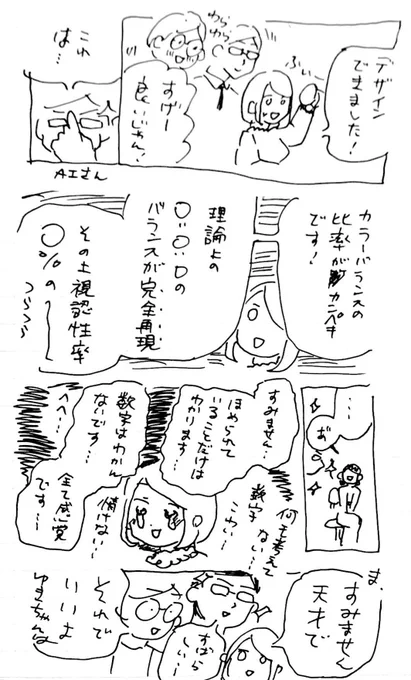 デザイン
できました!
ふぃー
わら
わら
すげー
良いじゃん!
これ
は…
AIさん
カラーバランスの
比率がカンペキ
です!
理論上の
〇:〇:〇の
バランスが完全再現
その上視認性率
〇%の〜
つらつら
…
すみません…
ほめられて
いることだけは
わかります…
数字はわかん
ないです…
へへ…
全て感覚
です…
何も考えて
ない…
数字
こわい…
情けない…
ま、
すみません
天才で
すばら
しい…
それで
いいよ
ゆまちゃんは